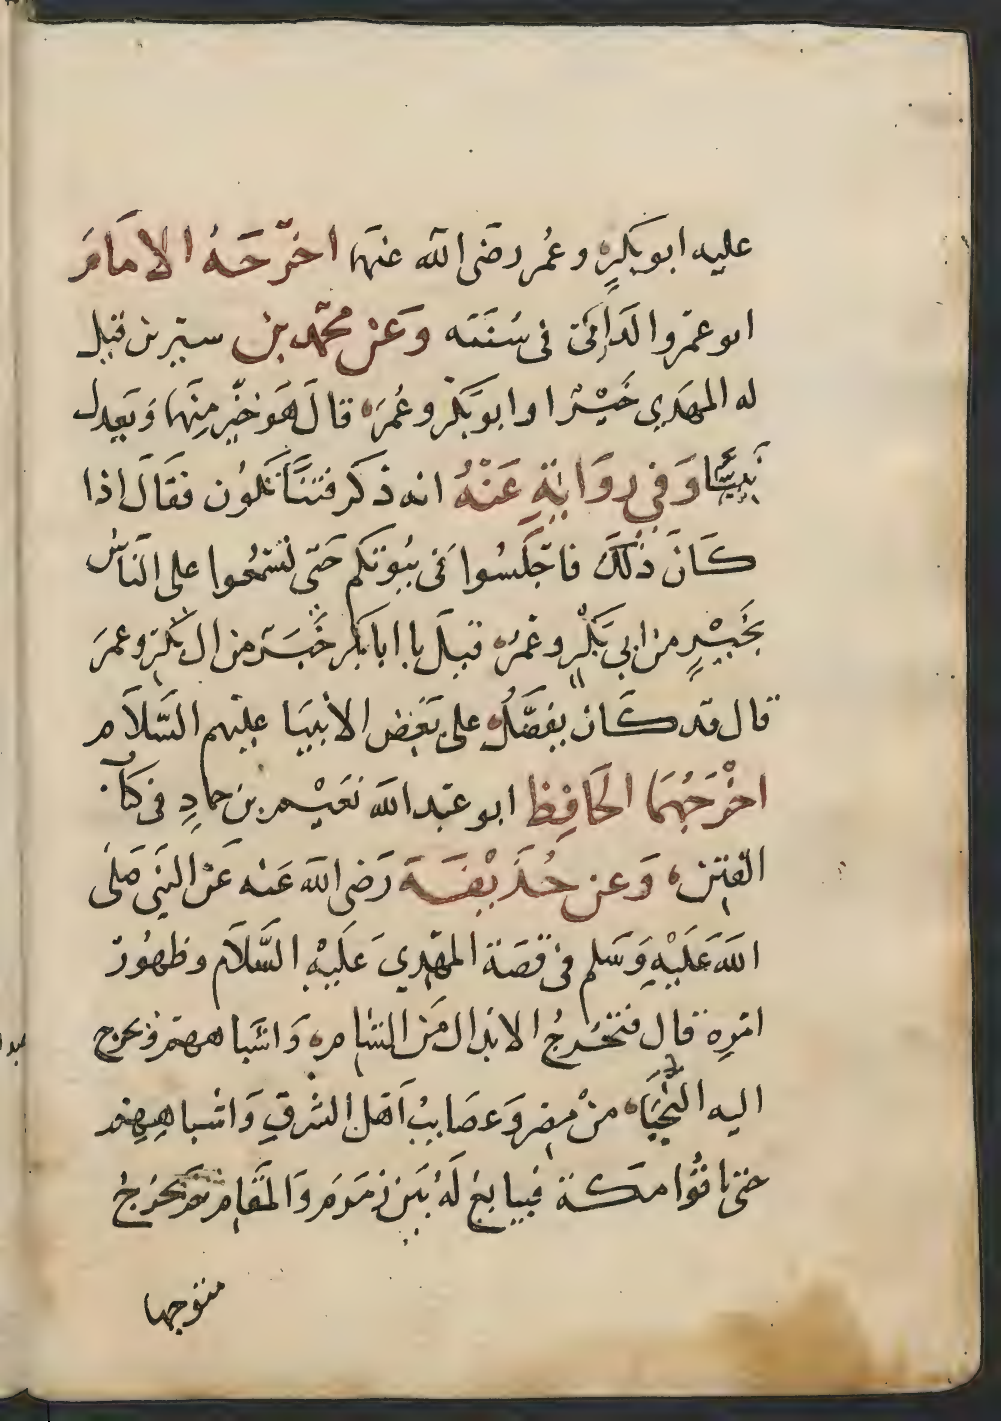 عليه ابو بكرٍ وعُمر رضَى الله عنهَما اخرّجَهُ الامَامَ
ابو عمَرو الدَانِى فى سُنَنَه وَعَن محمّد بن سيَرين قيل
له المهَدِى خَيْرٌ او ابو بَكْر وعُمرَ قالَ هَوَ خيّر مِنهَما وَيَعدِل
نَبيًا وَفي روَايَةٍ عَنْهُ انه ذكر فتنَة تكُون فقَالَ اذا
كَانَ ذٰلكَ فاجّلسُوا فى بيُوتكم حَتى تسْمعُوا على النَاس
بخَيْرٍ من ابى بَكْرٍ وعُمرَ قيل يا ابا بكر خَيَر من ابى بكرٍ وعمرَ
قال قد كَان يفَضَّلُ على بَعَض الانبيَا عليَهم السَّلاَم
اخْرَجَهُمَا الحَافِظ ابو عبَد الله نعَيْم بن حمادِ فى كتاب
الفِتن وَعن حُذَيْفَة رَضى الله عَنه عَن النَبَى صَلى
الله عَلَيْهِ وَسَلم فى قصَة المهَدي عَلَيْهِ السَّلَام وظهُورَ
امَرِه قال فتخْرجُ الابدال مَن الشام وَاشَباههمَ ويخرج
اليه النجَبَاء منْ مِصر وَعصَايبُ اَهَل الشرقِ وَاشبَاهِهِم
حتى ياتُوا مكَة فيبايعَ لَهُ بَين زمَزمَ وَالمقَام ثمَ يخرَجُ
متوجها